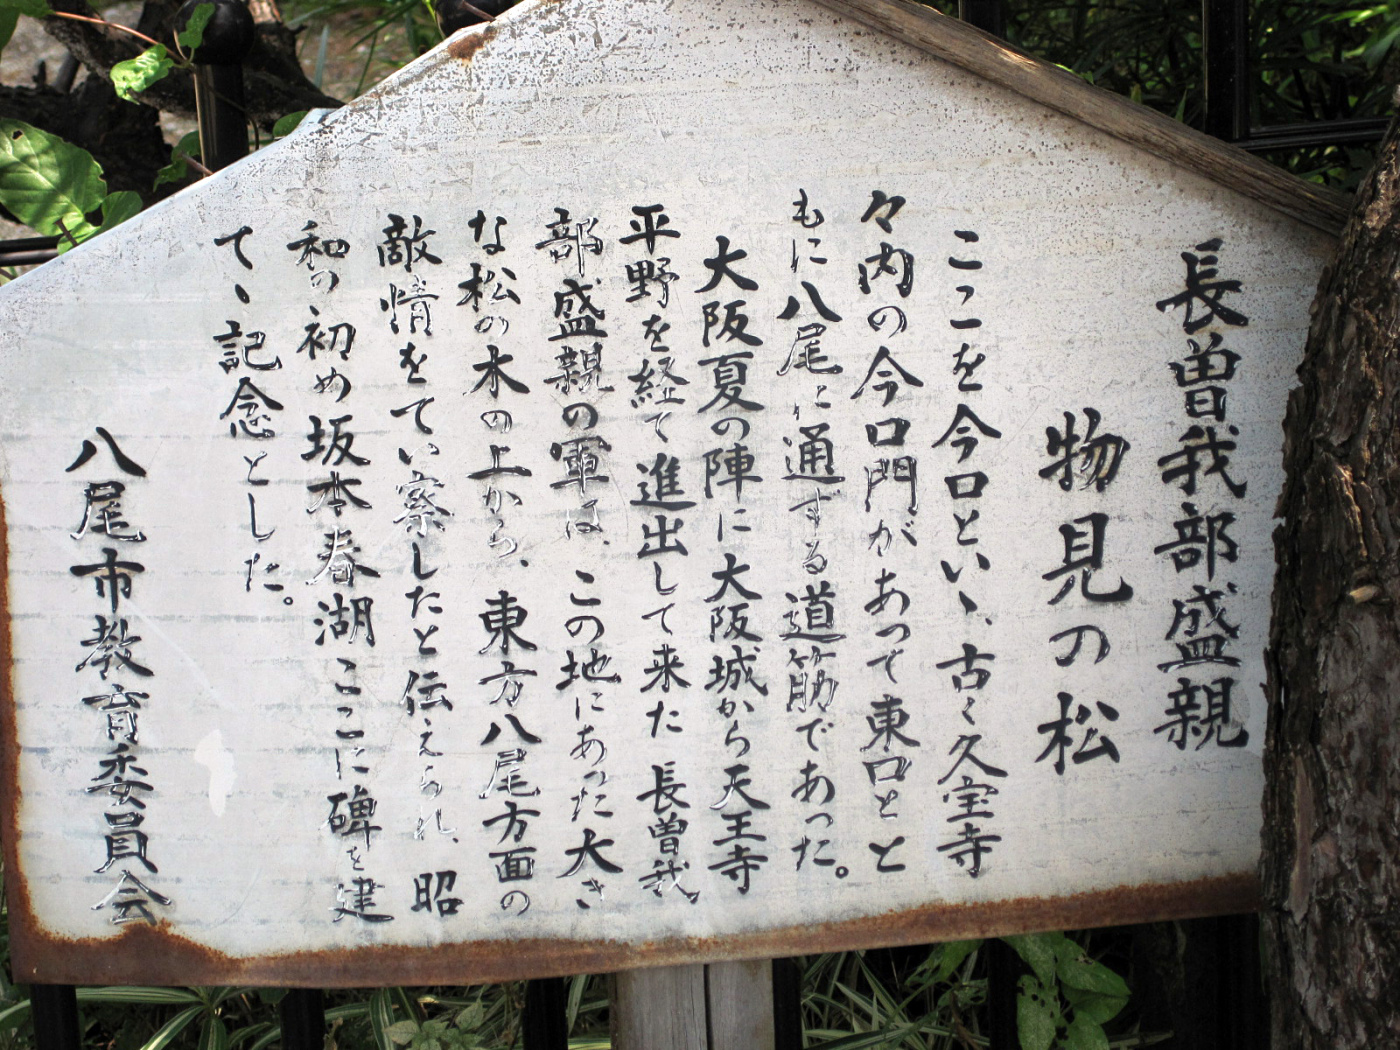 長曽我部盛親
物見の松
ここを今口といゝ、古く久宝寺
々内の今口門があって東口とと
もに八尾に通ずる道筋であった。
大阪夏の陣に大阪城から天王寺
平野を経て進出して来た長曽我
部盛親の軍は、この地にあった大き
な松の木の上から、東方八尾方面の
敵情をてい察したと伝えられ、昭
和の初め坂本春湖ここに碑を建
て、記念とした。
八尾市教育委員会